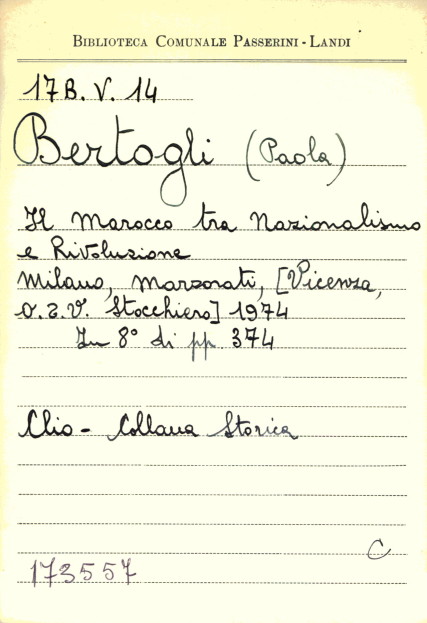 BIBLIOTECA COMUNALE PASSERINI - LANDI
17B. V. 14
Bertogli (Paola)
Il Marocco tra Nazionalismo
e Rivoluzione
Milano, Marzorati, [Vicenza,
O.Z.V. Stocchiero] 1974
In 8° di pp 374
Clio - Collana Storica
C
173557